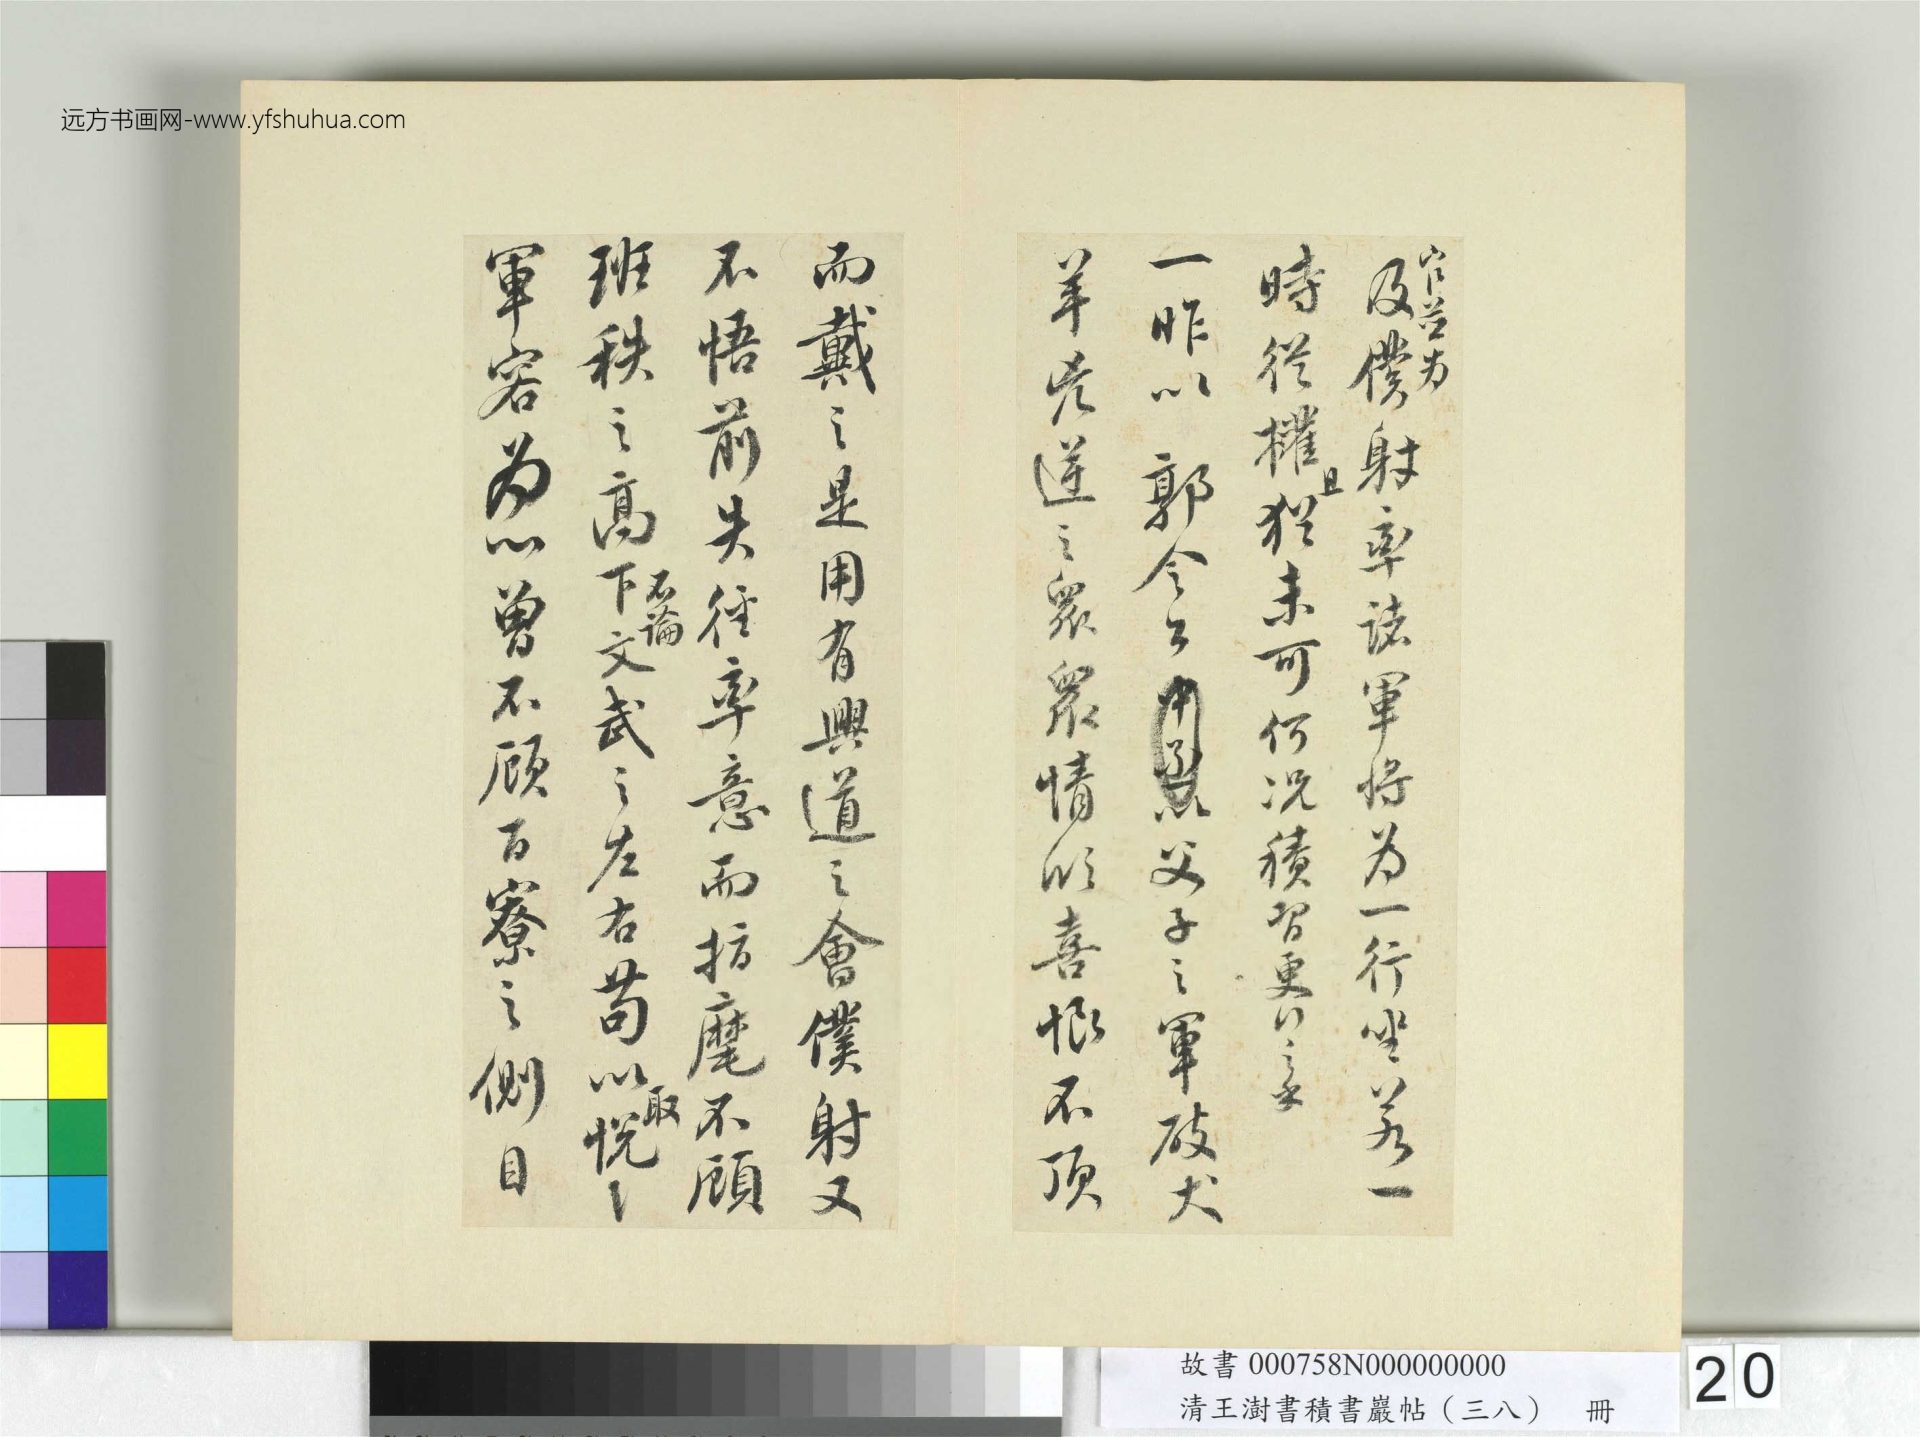 远方书画网-www.yfshuhua.com
官並为
及僕射率諸軍將为一行坐若一
時從權且猶未可何況積習更行之乎
一昨以郭令公以父子之軍破犬
羊兇逆之眾眾情欣喜恨不頂
而戴之是用有興道之會僕射又
不悟前失徑率意而指麾不顧
班秩之高下不論文武之左右苟以取悅
軍容为心曾不顧百寮之側目
故書 000758N000000000
清王澍書積書巖帖（三八） 冊
20